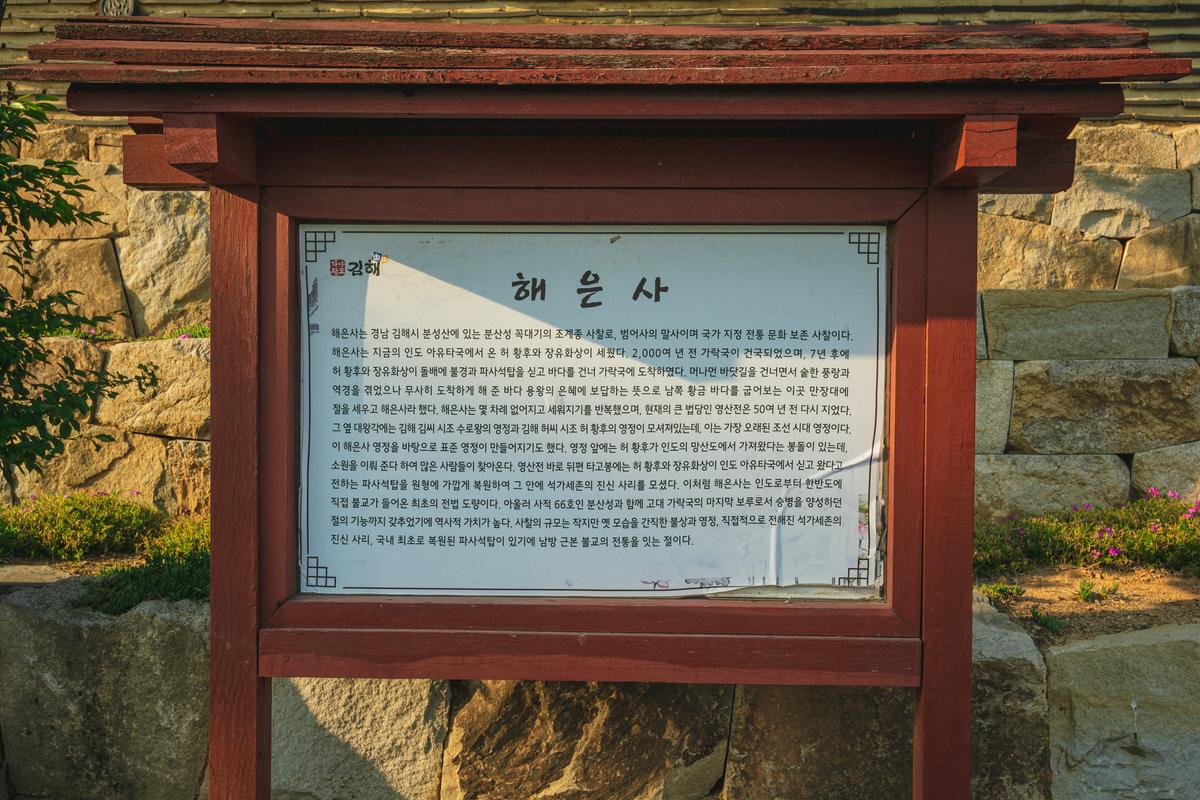 김해
해은사
해은사는 경남 김해시 분성산에 있는 분산성 꼭대기의 조계종 사찰로, 범어사의 말사이며 국가 지정 전통 문화 보존 사찰이다.
해은사는 지금의 인도 아유타국에서 온 허 황후와 장유화상이 세웠다. 2,000여 년 전 가락국이 건국되었으며, 7년 후에
허 황후와 장유화상이 돌배에 불경과 파사석탑을 싣고 바다를 건너 가락국에 도착하였다. 머나먼 바닷길을 건너면서 숱한 풍랑과
역경을 겪었으나 무사히 도착하게 해 준 바다 용왕의 은혜에 보답하는 뜻으로 남쪽 황금 바다를 굽어보는 이곳 만장대에
절을 세우고 해은사라 했다. 해은사는 몇 차례 없어지고 세워지기를 반복했으며, 현재의 큰 법당인 영산전은 50여 년 전 다시 지었다.
그 옆 대왕각에는 김해 김씨 시조 수로왕의 영정과 김해 허씨 시조 허 황후의 영정이 모셔져있는데, 이는 가장 오래된 조선 시대 영정이다.
이 해은사 영정을 바탕으로 표준 영정이 만들어지기도 했다. 영정 앞에는 허 황후가 인도의 망산도에서 가져왔다는 봉돌이 있는데,
소원을 이뤄 준다 하여 많은 사람들이 찾아온다. 영산전 바로 뒤편 타고봉에는 허 황후와 장유화상이 인도 아유타국에서 싣고 왔다고
전하는 파사석탑을 원형에 가깝게 복원하여 그 안에 석가세존의 진신 사리를 모셨다. 이처럼 해은사는 인도로부터 한반도에
직접 불교가 들어온 최초의 전법 도량이다. 아울러 사적 66호인 분산성과 함께 고대 가락국의 마지막 보루로서 승병을 양성하던
절의 기능까지 갖추었기에 역사적 가치가 높다. 사찰의 규모는 작지만 옛 모습을 간직한 불상과 영정, 직접적으로 전해진 석가세존의
진신 사리, 국내 최초로 복원된 파사석탑이 있기에 남방 근본 불교의 전통을 잇는 절이다.